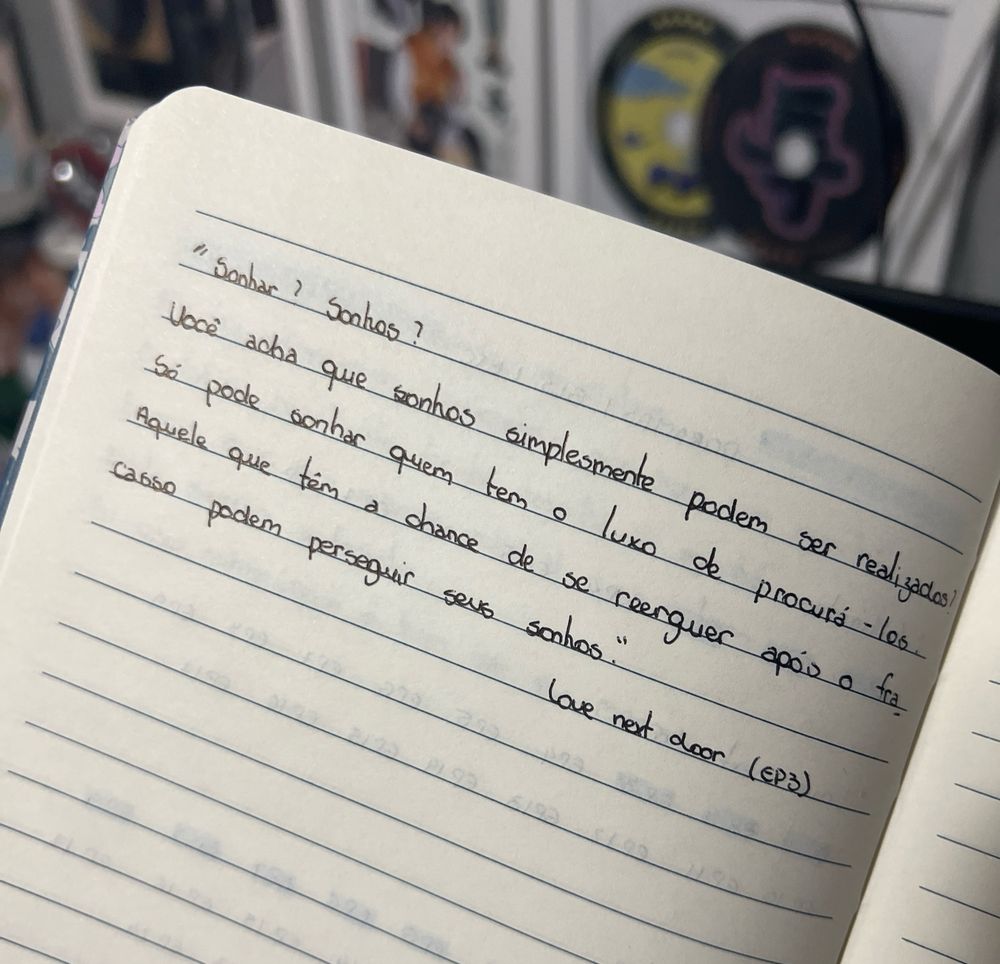 "Sonhar? Sonhos?
Você acha que sonhos simplesmente podem ser realizados?
Só pode sonhar quem tem o luxo de procurá-los.
Aquele que têm a chance de se reerguer após o fra
casso podem perseguir seus sonhos."
Love next door (EP3)